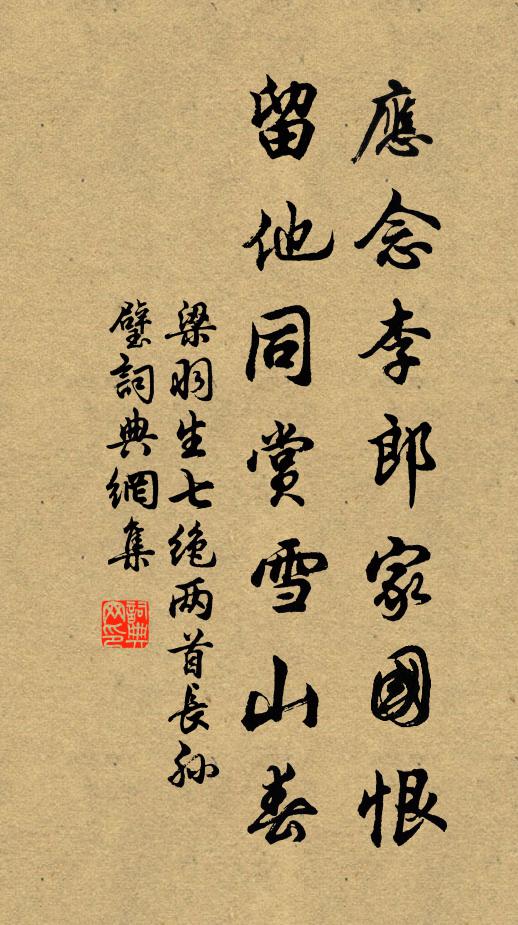 應念李郎家國恨
留他同賞雪山春
梁羽生七绝两首長孙
璧詞典網集
詞典
网印